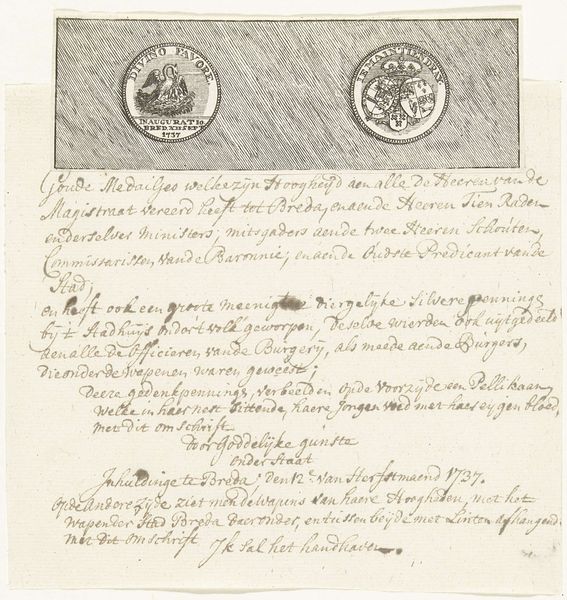 DIVINO FAVORE.
INAUGURATIO
BRED. XII SEPT
1737
JE MAINTIENDRAY
Goude Medailjes welke zijn Hoogheijd aen alle de Heeren van de
Magistraat vereerd heeft tot Breda, en aende Heeren Tien Raden
en derselver Ministers; mitsgaders aende twee Heeren Schouten,
Commissarissen vande Baronnie; en aende Oudste Predicant vande
Stad;
en heeft ook een groote meenigte diergelijke Silvere penninge
bij 't Stadhuijs onder 't volk geworpen, deselve wierden ook uijtgedeeld
aen alle de Officieren vande Burgerij, als meede aende Burgers,
die onder de wapenen waren geweest;
Deeze gedenkpennings, verbeeld en op de voorzijde een Pellikaan,
welke in haer nest sittende, haere Jongen voed met haer eijgen bloed,
met dit omschrift
Door Goddelijke gunste
onder staat
Inhuldinge te Breda den 12e. van Herfstmaend 1737.
Op de Andere zijde ziet men de wapens van haere Hoogheden, met het
wapen der Stad Breda daeronder, en tussen beijde met Linten afhangend
met dit omschrift Ik sal het handhaven.